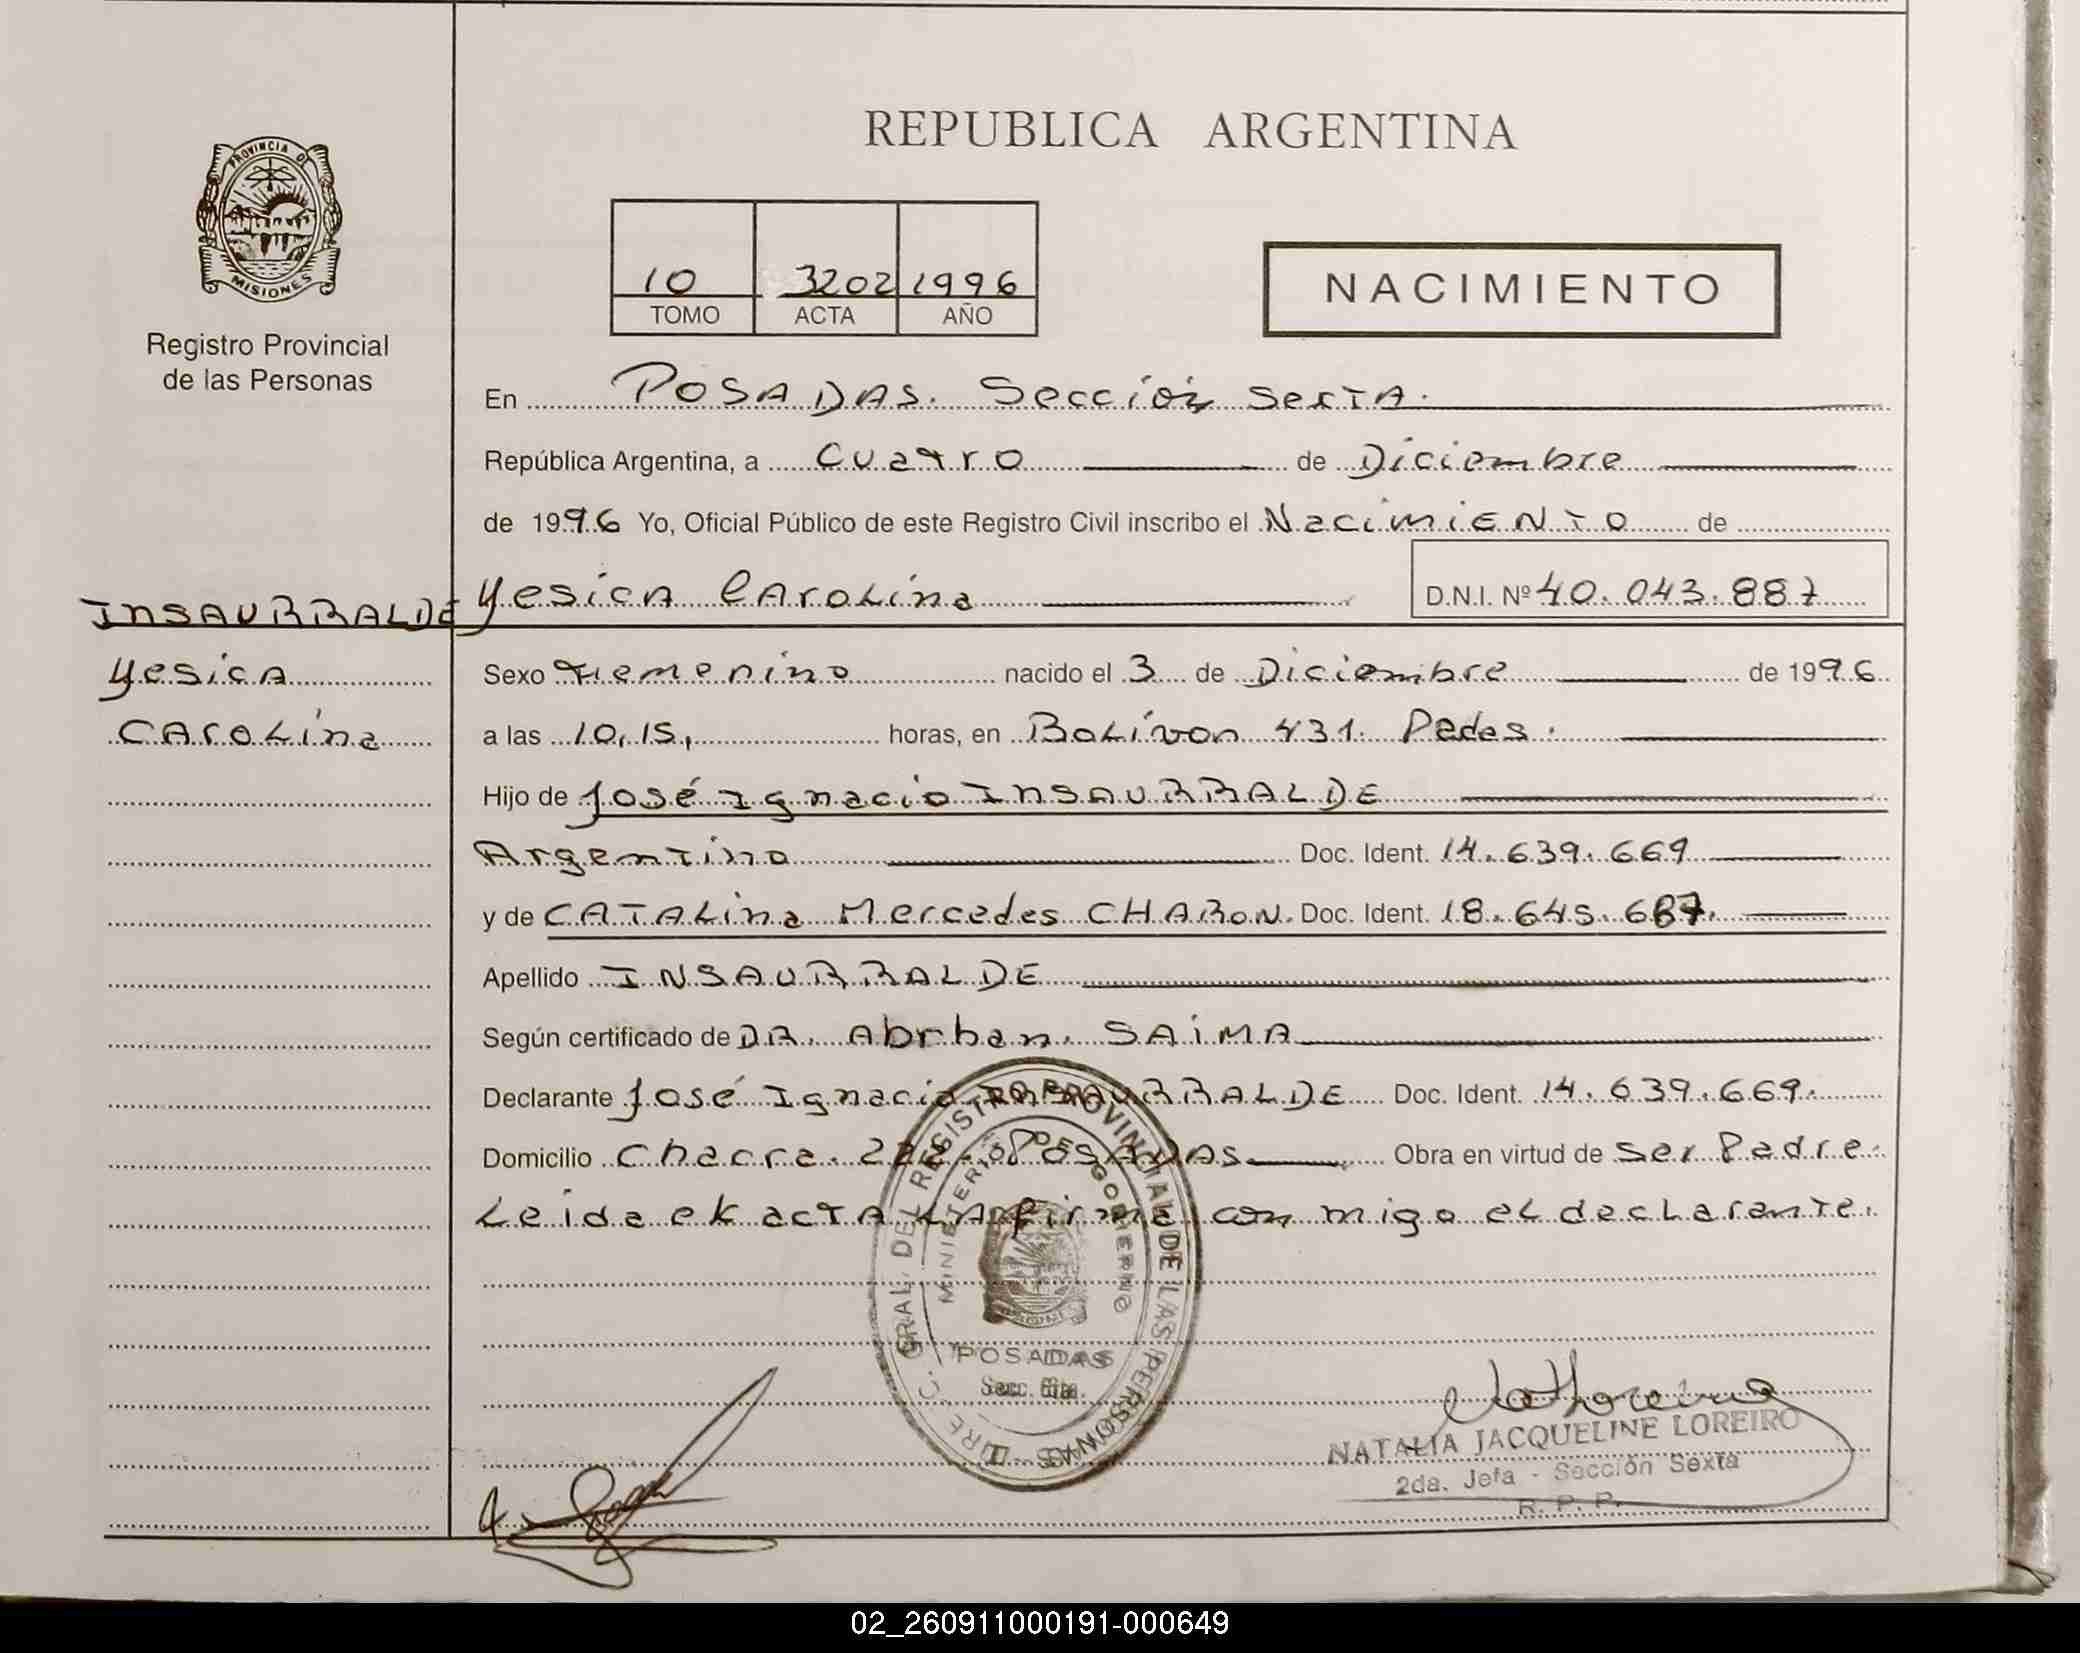 REPUBLICA ARGENTINA
PROVINCIA DE
MISIONES
Registro Provincial
de las Personas
10 3202 1996
TOMO ACTA AÑO
NACIMIENTO
En POSADAS. Sección SextA.
República Argentina, a Cuatro de Diciembre
de 1996 Yo, Oficial Público de este Registro Civil inscribo el NacimiENTO de
Yesica Carolina D.N.I. Nº 40.043.887
INSAURRALDE
Yesica
Carolina
Sexo Femenino nacido el 3 de Diciembre de 1996
a las 10,15, horas, en Bolivar 431. Pdas.
Hijo de José Ignacio INSAURRALDE
Argentino Doc. Ident. 14.639.669
y de CATALina Mercedes CHARON. Doc. Ident. 18.645.687.
Apellido INSAURRALDE
Según certificado de DR. Abrhan. SAIMA
Declarante José Ignacio INSAURRALDE Doc. Ident. 14.639.669.
Domicilio Chacra. 222. POSADAS Obra en virtud de ser Padre.
Leida ek actA LA firma con migo el declarante.
DIREC. GRAL. DEL REGISTRO PROVINCIAL DE LAS PERSONAS
MINISTERIO DE GOBIERNO
POSADAS
Secc. 6ta.
NATALIA JACQUELINE LOREIRO
2da. Jefa - Sección Sexta
R. P. P.
02_260911000191-000649